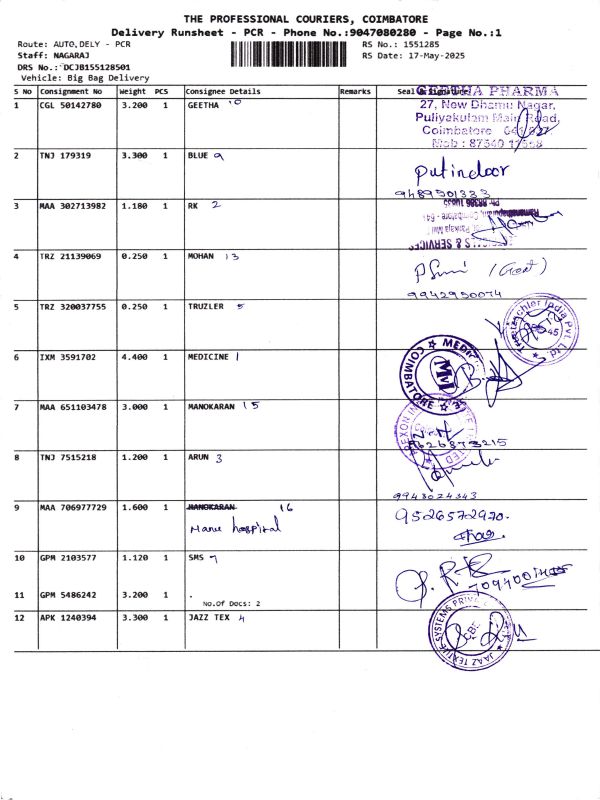 THE PROFESSIONAL COURIERS, COIMBATORE
Delivery Runsheet - PCR - Phone No.:9047080280 - Page No.:1
Route: AUTO,DELY - PCR RS No.: 1551285
Staff: NAGARAJ RS Date: 17-May-2025
DRS No.: DCJB155128501
Vehicle: Big Bag Delivery
S No Consignment No Weight PCS Consignee Details Remarks Seal
GEETHA PHARMA
1 CGL 50142780 3.200 1 GEETHA 10
27, New Dhamu Nagar,
Puliyakulam Main Road,
Coimbatore
Mob : 87540
2 TNJ 179319 3.300 1 BLUE 9
Putindoor
9489501333
3 MAA 302713982 1.180 1 RK 2
S & SERVICES
4 TRZ 21139069 0.250 1 MOHAN 13
(Gent)
9942950074
5 TRZ 320037755 0.250 1 TRUZLER 5
India Pvt. Ltd.
6 IXM 3591702 4.400 1 MEDICINE 1
COIMBATORE
7 MAA 651103478 3.000 1 MANOKARAN 15
9626873215
8 TNJ 7515218 1.200 1 ARUN 3
9943024343
9 MAA 706977729 1.600 1 MANOKARAN 16
Manu hospital
9526572970.
10 GPM 2103577 1.120 1 SMS 7
11 GPM 5486242 3.200 1 .
No.Of Docs: 2
12 APK 1240394 3.300 1 JAZZ TEX 4
JAAZ TEXTILE SYSTEMS PRIVATE